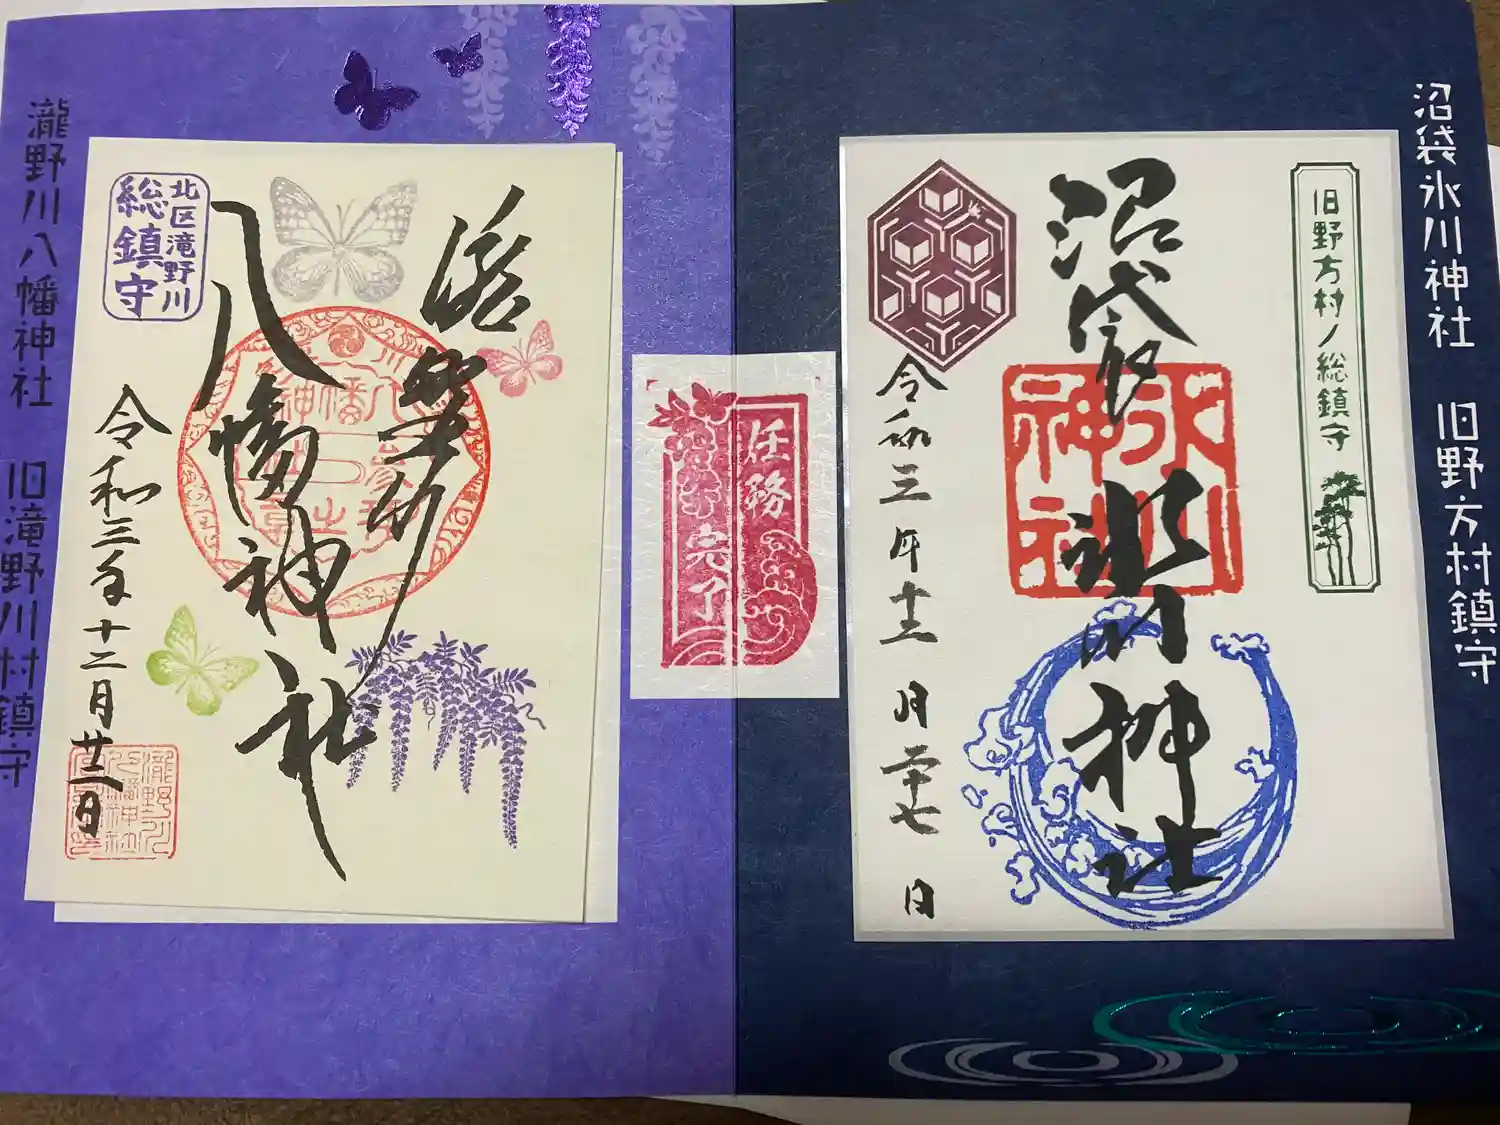 瀧野川八幡神社 旧滝野川村鎮守
北区滝野川
総鎮守
滝野川
八幡神社
令和三年十二月廿二日
任務
完了
沼袋氷川神社
氷川
神社
令和三年十二月二十七日
旧野方村ノ総鎮守
沼袋氷川神社 旧野方村鎮守